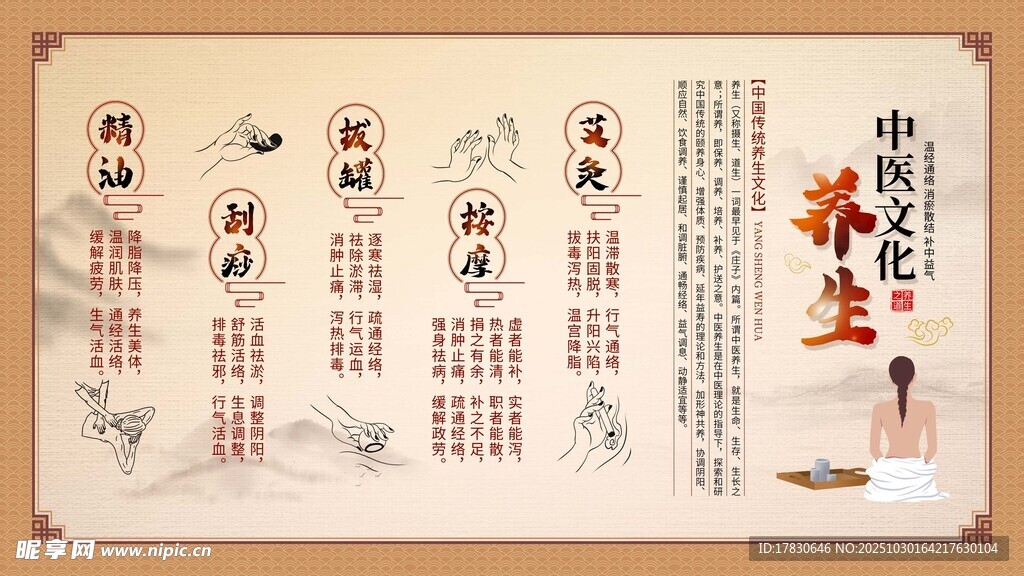 中医文化
养生
温经通络 消瘀散结 补中益气
养生之道
【中国传统养生文化】
YANG SHENG WEN HUA
养生（又称摄生、道生）一词最早见于《庄子》内篇。所谓中医养生，就是生命、生存、生长之
意；所谓养，即保养、调养、培养、补养、护送之意。中医养生是在中医理论的指导下，探索和研
究中国传统的颐养身心、增强体质、预防疾病、延年益寿的理论和方法，加形神共养，协调阴阳、
顺应自然、饮食调养、谨慎起居、和调脏腑、通畅经络、益气调息、动静适宜等等。
艾灸
温滞散寒，行气通络，
扶阳固脱，升阳兴陷，
拔毒泻热，温宫降脂。
按摩
虚者能补，实者能泻，
热者能清，职者能散，
捐之有余，补之不足，
消肿止痛，疏通经络，
强身祛病，缓解政劳。
拔罐
逐寒祛湿，疏通经络，
祛除淤滞，行气运血，
消肿止痛，泻热排毒。
刮痧
活血祛淤，调整阴阳，
舒筋活络，生息调整，
排毒祛邪，行气活血。
精油
降脂降压，养生美体，
温润肌肤，通经活络，
缓解疲劳，生气活血。
昵享网 www.nipic.cn
ID:17830646 NO:20251030164217630104